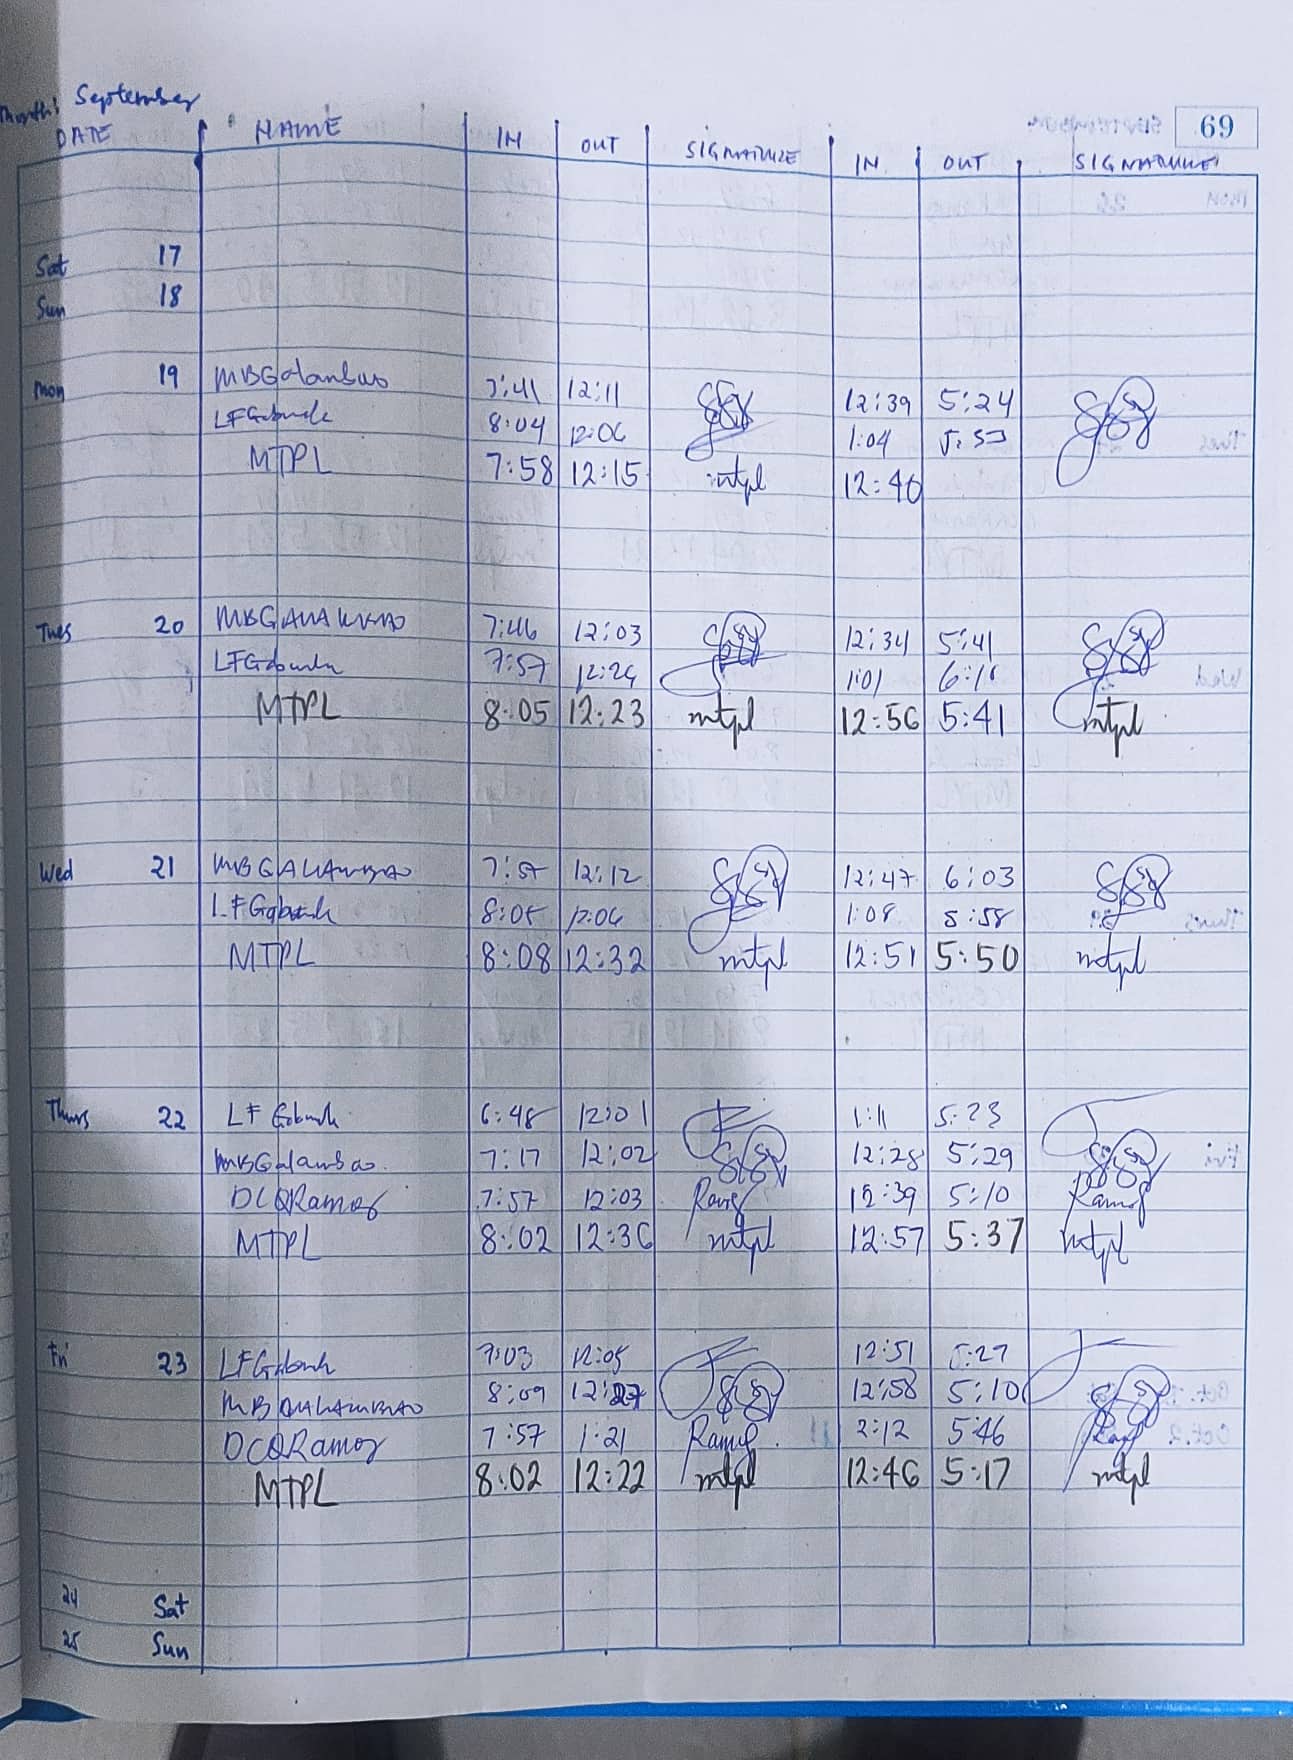 Month: September 69
DATE NAME IN OUT SIGNATURE IN OUT SIGNATURE
Sat 17
Sun 18
Mon 19 MBGalambao 7:41 12:11 12:39 5:24
LFGabunada 8:04 12:06 1:04 5:53
MTPL 7:58 12:15 mtpl 12:40
Tues 20 MBGALAMBAO 7:46 12:03 12:34 5:41
7:57 12:24 1:01
MTPL 8:05 12:23 mtpl 12:56 5:41 mtpl
Wed 21 MBGALAMBAO 7:57 12:12 12:47 6:03
12:06 1:08 5:58
MTPL 8:08 12:32 mtpl 12:51 5:50 mtpl
Thurs 22 6:48 12:01 1:11 5:23
MBGalambao 7:17 12:02 12:28 5:29
DCQRamos 7:57 12:03 Ramos 12:39 5:10 Ramos
MTPL 8:02 12:36 mtpl 12:57 5:37 mtpl
Fri 23 7:03 12:05 12:51 5:27
MBGALAMBAO 8:09 12:27 12:58 5:10
DCQRamos 7:57 1:21 Ramos 2:12 5:46
MTPL 8:02 12:22 mtpl 12:46 5:17 mtpl
24 Sat
25 Sun